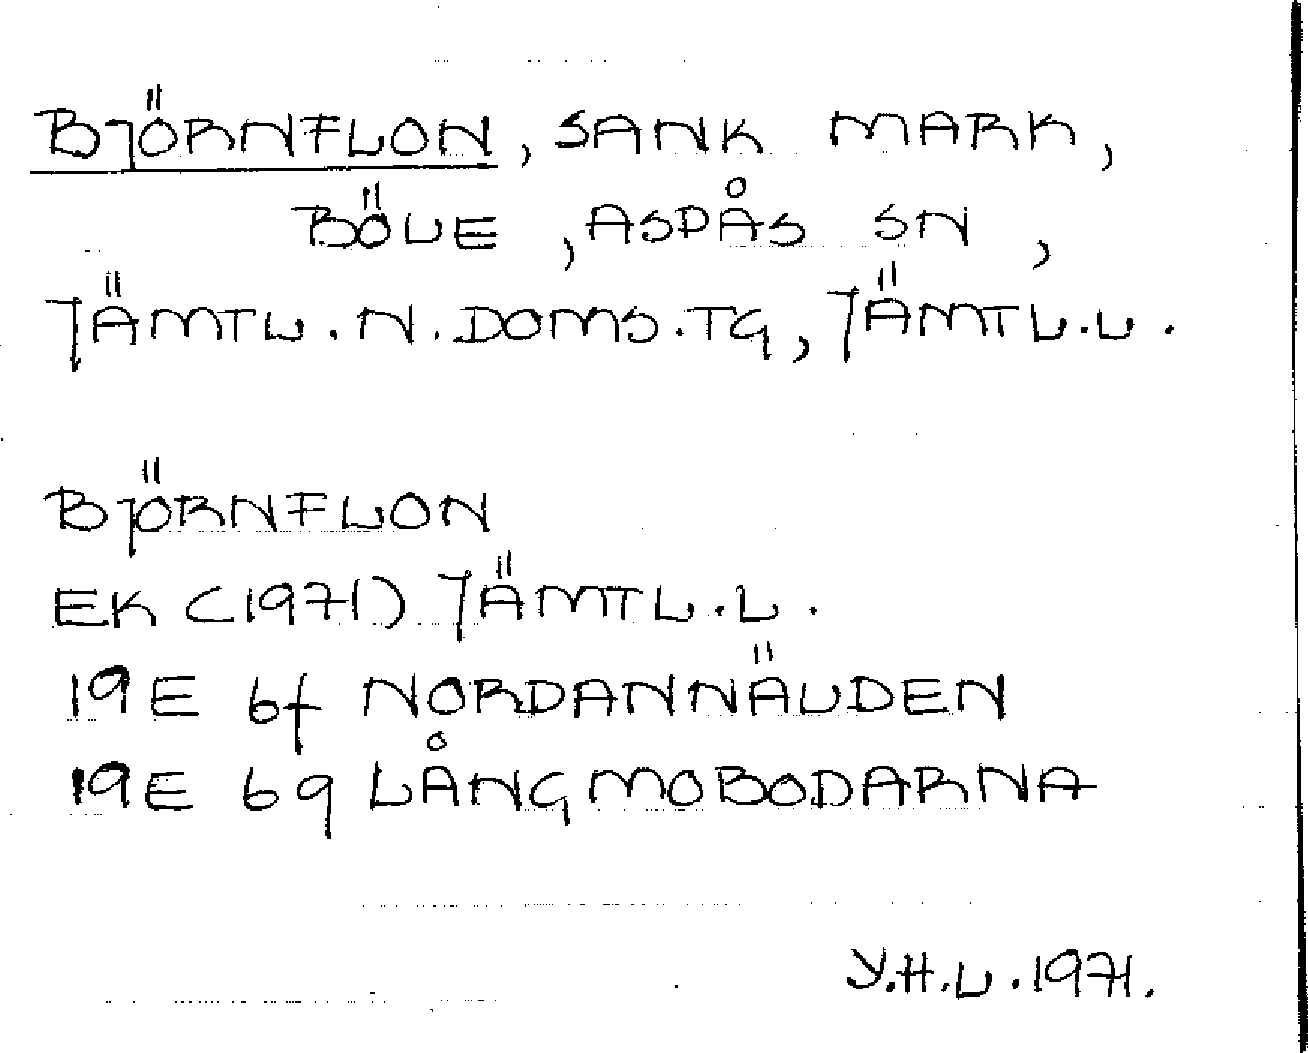 BJÖRNFLON, SANK MARK,
BÖLE, ASPÅS SN,
JÄMTL. N. DOMS. TG, JÄMTL. L.
BJÖRNFLON
EK (1971) JÄMTL. L.
19E 6f NORDANNÄLDEN
19E 6g LÅNGMOBODARNA
Y.H.L. 1971.